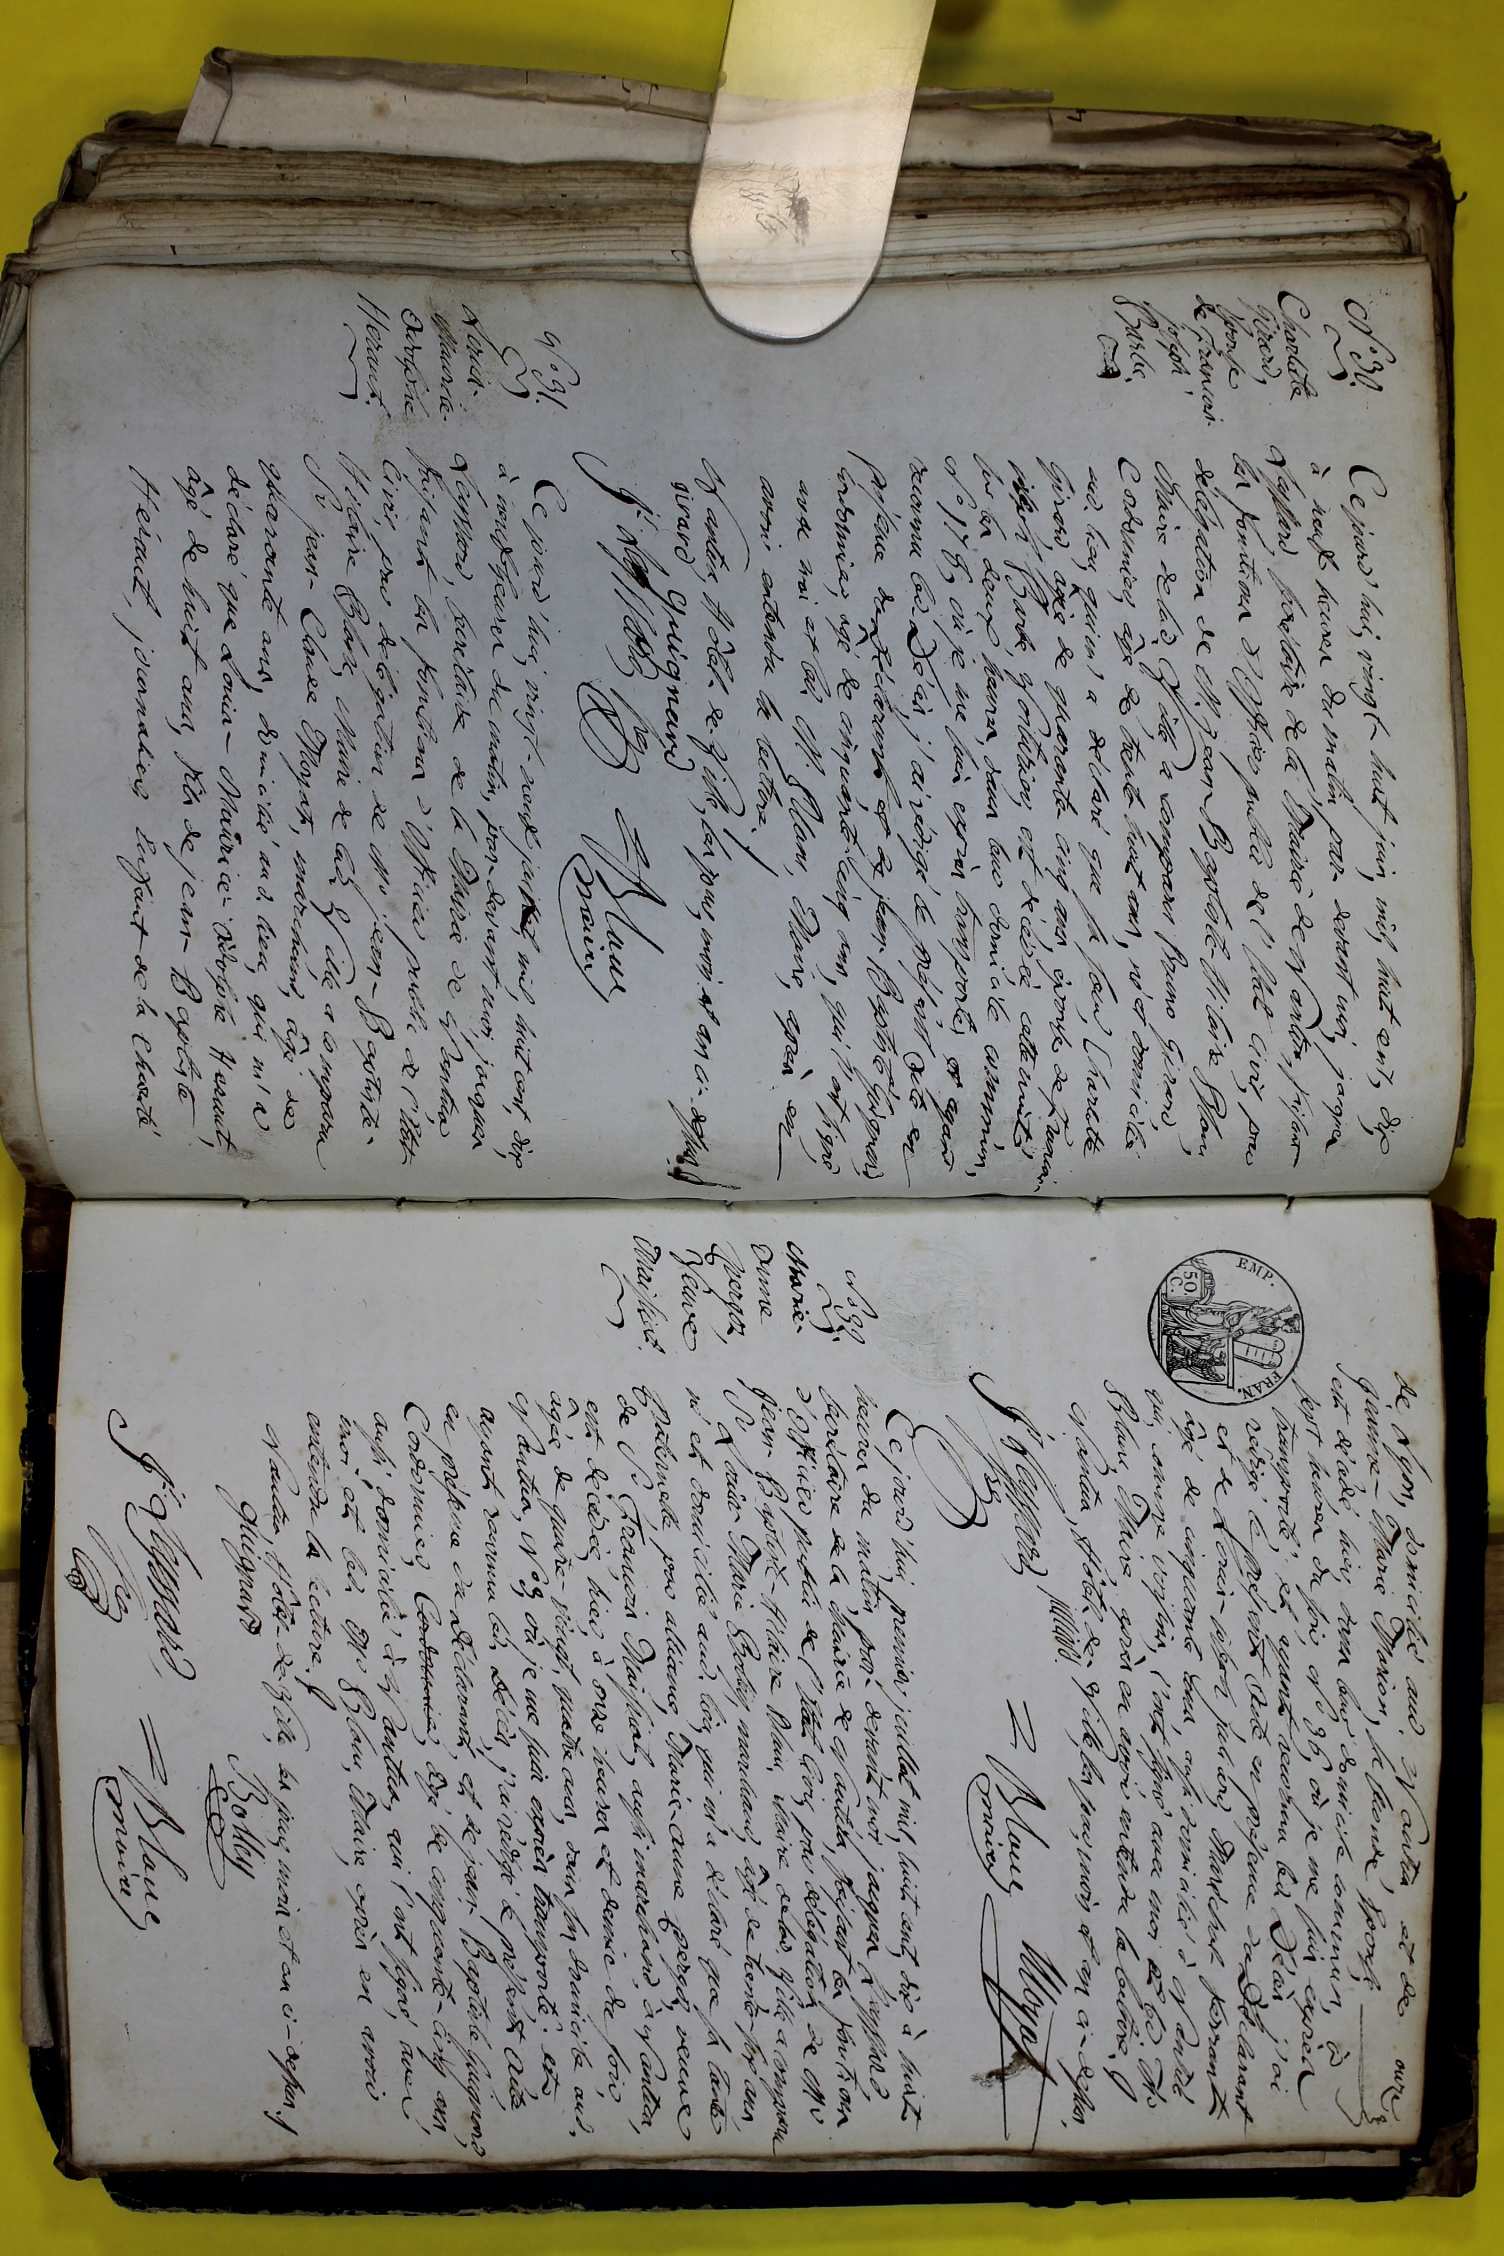 N.º 30.
Charlotte
Girard,
épouse
de François
joseph
Barbe.
Ce jourd'hui, vingt-huit juin, mil, huit cent, dix
à neuf heures du matin, par devant moi, jacques
Lassard, secrétaire de la Mairie de Nantua, faisant
les fonctions d'officier public de l'état civil, par
délégation de M. jean-Baptiste-Hilaire Blanc,
Maire de lad. Ville, a comparu Bruno Girard,
Cordonnier, âgé de trente huit ans, né et domicilié
aud. lieu, qui m'a déclaré que sa sœur, Charlotte
Girard, âgée de quarante cinq ans, épouse de François
joseph Barbe, Voiturier, est décédée cette nuit
sur les deux heures, dans leur domicile commun,
N.º 178, où je me suis exprès transporté, et ayant
reconnu led. Décès, j'ai rédigé le présent acte en
présence du Déclarant et de jean-Baptiste Guignard,
cordonnier, âgé de cinquante cinq ans, qui l'ont signé
avec moi et led. M. Blanc, Maire, après en
avoir entendu la lecture.
Nantua, Hôtel-de-Ville, les jour, mois et an ci-dessus.
girard guignard
J. Lassard
Blanc
maire
N.º 31.
Louis-
Maurice-
Adolphe
Heraut.
Ce jourd'hui, vingt-neuf juin, mil, huit cent, dix
à neuf heures du matin, par-devant moi, jacques
Lassard, secrétaire de la Mairie de Nantua
faisant les fonctions d'officier public de l'état
Civil, par délégation de M. jean-Baptiste-
Hilaire Blanc, Maire de lad. Ville a comparu
S. jean-Claude Moyat, marchand, âgé de
quarante ans, domicilié aud. lieu, qui m'a
déclaré que Louis-Maurice-Adolphe Heraut,
âgé de huit ans, fils de jean-Baptiste
Héraut, journalier, Enfant de la charité
de Lyon, domicilié aud. Nantua et de
jeanne-Marie Marion, sa femme, épouse
est décédé, hier, dans leur domicile commun, à
sept heures du soir, N.º 36, où je me suis exprès
transporté; et ayant reconnu led. Décès j'ai
rédigé le présent acte en présence du Déclarant
et de Louis-joseph julliard, Maréchal ferrant
âgé de cinquante deux, aussi domicilié à Nantua
qui, comme voisins, l'ont signé avec moi et led. M.
Blanc, Maire, après en avoir entendu la lecture.
Nantua, Hôtel-de-Ville, les jour, mois et an ci-dessus,
EMP.
FRAN.
50.
C.
J. Lassard
Blanc
maire
Moyat
N.º 32.
Marie-
Anne
Perga,
Veuve
Maissiat.
Ce jourd'hui, premier juillet mil, huit cent, dix à huit
heures du matin, par devant moi, jacques Lassard
secrétaire de la Mairie de Nantua, faisant les fonctions
d'officier public de l'état civil, par délégation de M.
jean-Baptiste-Hilaire Blanc, Maire de lad. Ville a comparu
S. Louis-Marie Bolley, marchand, âgé de trente-six ans,
né et domicilié aud. lieu, qui m'a déclaré que sa tante
Maternelle, par alliance, Marie-anne perga, veuve
de S. François Maissiat, aussi marchand, à Nantua,
est décédée, hier, à onze heures et demie du soir,
âgée de quatre-vingt, quatre ans, dans son domicile aud.
Nantua, N.º 9, où je me suis exprès transporté: et
ayant reconnu led. Décès, j'ai rédigé le présent acte
en présence du Déclarant, et de jean-Baptiste guignard
Cordonnier, Cordonnier, âgé de cinquante-cinq ans,
aussi domicilié à Nantua, qui l'ont signé, avec
moi et led. M. Blanc, Maire, après en avoir
entendu la lecture.
Nantua, Hôtel-de-Ville, les jour, mois et an ci-dessus.
Guignard
Bolley
J. Lassard,
Blanc,
maire